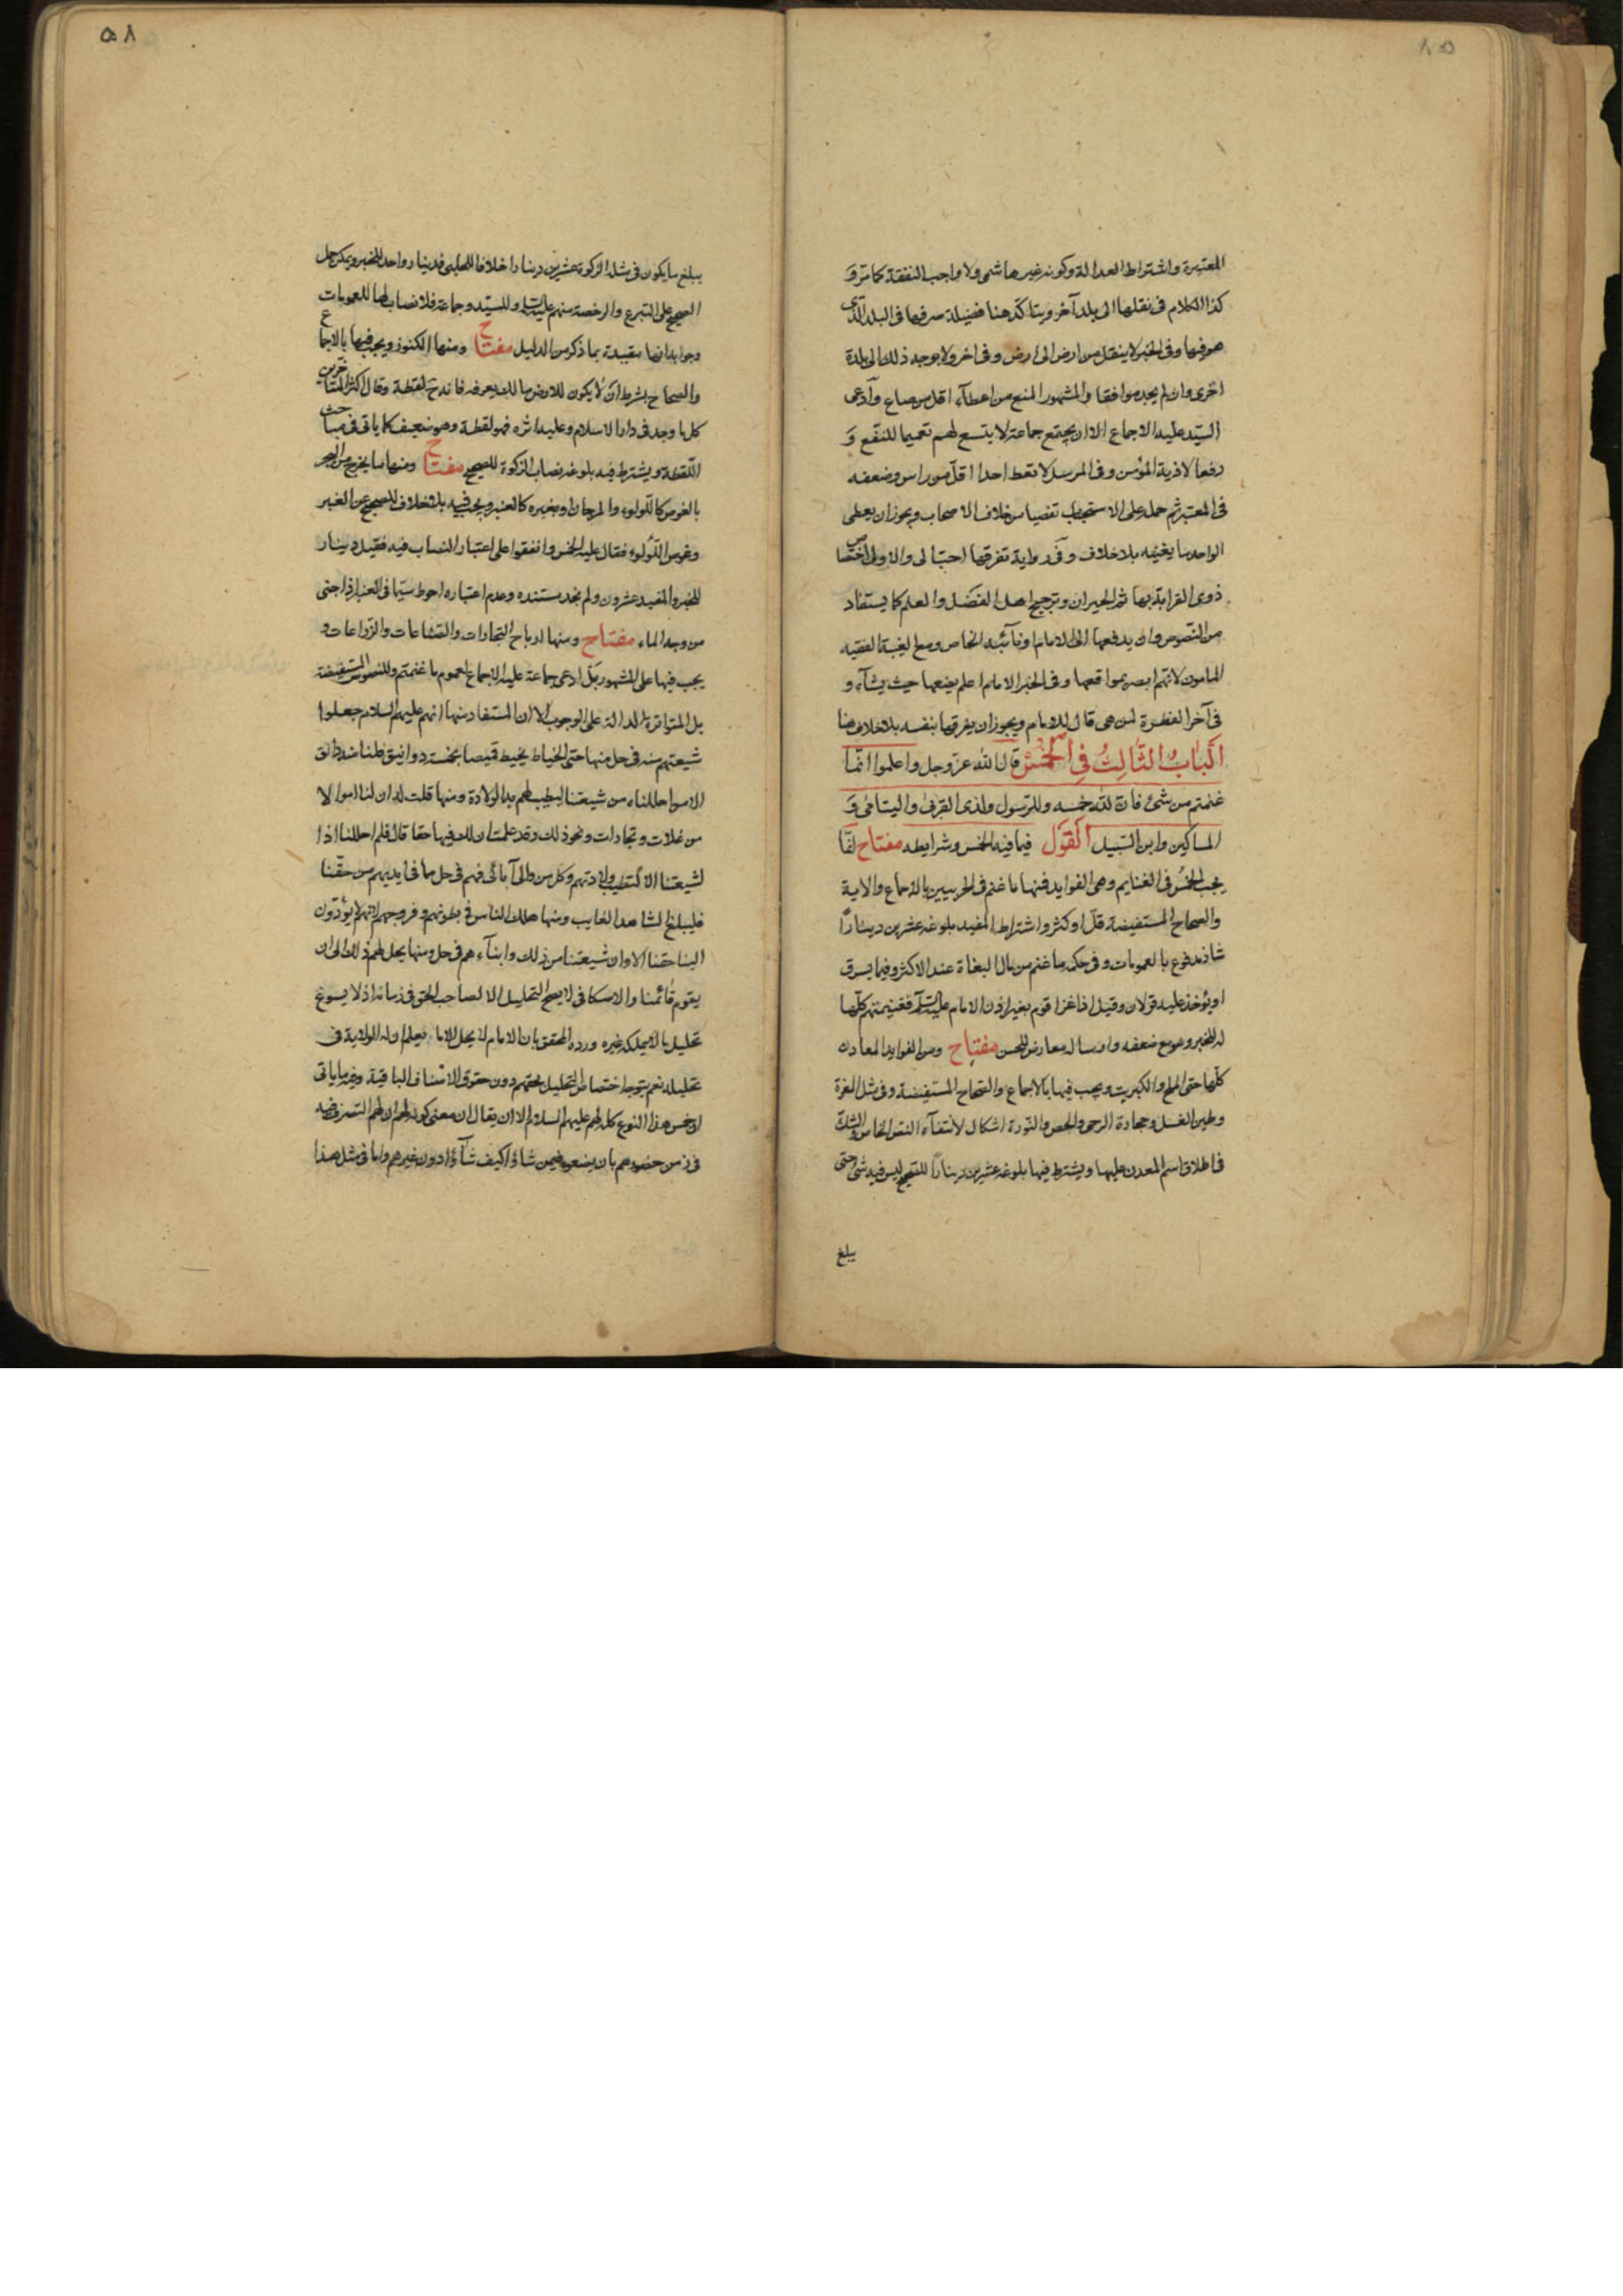 المعتبرة واشتراط العدالة وكونه غير هاشمى ولا واجب النفقة كما مر و
كذا الكلام فى نقلها الى بلد آخر ويتاكد هنا فضيلة صرفها فى البلد الذى
هو فيها وفى الخبر لا ينقل من ارض الى ارض وفى اخر ولا يوجه ذلك الى بلدة
اخرى وان لم يجد موافقا والمشهور المنع من اعطاء اقل من صاع وادعى
السيد عليه الاجماع الا ان يجتمع جماعة لا يتسع لهم تعميما للنفع و
دفعا لاذية المؤمن وفى المرسل لا تعط احدا اقل من راس وضعفه
فى المعتبر ثم حمله على الاستحباب تفصيا من خلاف الاصحاب ويجوز ان يعطى
الواحد ما يغنيه بلا خلاف وفى رواية تفرقها احب الى والاولى اختصاص
ذوى القرابة بها ثم الجيران وترجيح اهل الفضل والعلم كما يستفاد
من النصوص وان يدفعها الى الامام او نائبه الخاص ومع الغيبة الفقيه
المامون لانهم ابصر بمواقعها وفى الخبر الامام اعلم يضعها حيث يشاء و
فى آخر الفطرة لمن هى قال للامام ويجوز ان يفرقها بنفسه بلا خلاف منا
الباب الثالث فى الخمس قال الله عز وجل واعلموا انما
غنمتم من شئ فان لله خمسه وللرسول ولذى القربى واليتامى و
المساكين وابن السبيل القول فيما فيه الخمس وشرايطه مفتاح انما
يجب الخمس فى الغنايم وهى الفوايد فمنها ما غنم فى الحربيين بالاجماع والاية
والصحاح المستفيضة قل او كثر واشتراط المفيد بلوغه عشرين دينارا
شاذ مدفوع بالعمومات وفى حكمه ما غنم من مال البغاة عند الاكثر وفيما يسرق
او يؤخذ عليه قولان وقيل اذا غزا قوم بغير اذن الامام عليه السلم فغنيمتهم كلها
له للخبر وهو مع ضعفه وارساله معارض للحسن مفتاح ومن الفوايد المعادن
كلها حتى الملح والكبريت ويجب فيها بالاجماع والصحاح المستفيضة وفى مثل المغرة
وطين الغسل وحجارة الرحى والجص والنورة اشكال لانتفاء النص الخاص والشك
فى اطلاق اسم المعدن عليها ويشترط فيها بلوغه عشرين دينارا للصحيح ليس فيه شى حتى
يبلغ
٥٨
يبلغ ما يكون فى مثله الزكوة عشرين دينارا خلافا للحلبى فدينارا واحدا للخبر ويمكن حمل
الصحيح على التبرع والرخصة منهم عليه السلم وللسيد وجماعة فلا نصاب لها للعمومات
وجوابه انها مقيدة بما ذكر من الدليل مفتاح ومنها الكنوز ويجب فيها بالاجماع
والصحاح بشرط ان لا يكون للارض مالك يعرفه فانه ح لقطة وقال اكثر المتاخرين
كل ما وجد فى دار الاسلام وعليه اثره فهو لقطة وهو ضعيف كما ياتى فى مباحث
اللقطة ويشترط فيه بلوغه نصاب الزكوة للصحيح مفتاح ومنها ما يخرج من البحر
بالغوص كاللؤلوء والمرجان او بغيره كالعنبر ويجب فيه بلا خلاف للصحيح عن العنبر
وغوص اللؤلوء فقال عليه الخمس واتفقوا على اعتبار النصاب فيه فقيل دينار
للخبر والمفيد عشرون ولم نجد مستنده وعدم اعتباره احوط سيما فى العنبر اذا جنى
من وجه الماء مفتاح ومنها ارباح التجارات والصناعات والزراعات و
يجب فيها على المشهور بل ادعى جماعة عليه الاجماع لعموم ما غنمتم وللنصوص المستفيضة
بل المتواترة الدالة على الوجوب الا ان المستفاد منها انهم عليهم السلام جعلوا
شيعتهم منه فى حل منها حتى الخياط يخيط قميصا بخمسة دوانيق فلنا منه دانق
الا من احللناه من شيعتنا ليطيب لهم به الولادة ومنها قلت له ان لنا اموالا
من غلات وتجارات ونحو ذلك وقد علمت ان لك فيها حقا قال فلم احللنا اذا
لشيعتنا الا لتطيب ولادتهم وكل من والى آبائى فهم فى حل مما فى ايديهم من حقنا
فليبلغ الشاهد الغايب ومنها هلك الناس فى بطونهم وفروجهم لانهم لا يؤدون
الينا حقنا الا وان شيعتنا من ذلك وابناءهم فى حل ومنها يحل لهم ذلك الى ان
يقوم قائمنا والاسكافى لا يصح التحليل الا لصاحب الحق فى زمانه اذ لا يسوغ
تحليل ما لا يملكه غيره ورده المحقق بان الامام لا يحل الا ما يعلم ان له الولاية فى
تحليله نعم يتوجه اختصاص التحليل بحقهم دون حقوق الاصناف الباقية وغيرها ياتى
لان خمس هذا النوع كله لهم عليهم السلام الا ان يقال ان معنى كونه لهم ان لهم التصرف فيه
فى زمن حضورهم بان يضعوه فيمن شاؤا كيف شاؤا دون غيرهم واما فى مثل هذا